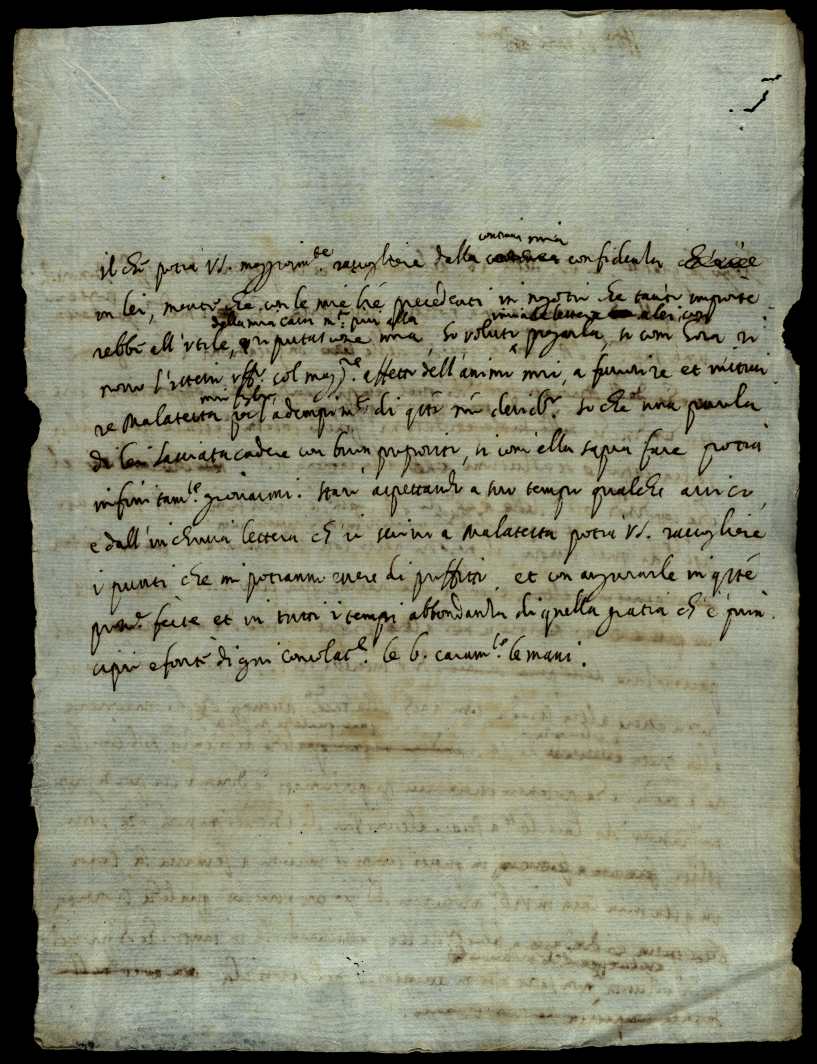 continua mia
il che potrà VS. maggiorm.te raccogliere dalla confidentia
in lei, mentre che con le mie tre precedenti in negotii che tanto importe
dalla mia casa m.to più alla
rebbe all'utile, reputatione mia so voluto pregarla, si com' hora ri
novo l'istessi uff.i col magg.re affetto dell'animo mio, a favorire et instrui
mio fig.lo
re Malatesta per l'adempim.to di q.to mio desid.o. so che una parola
di lei lasciata cadere con buon proposito, si com' ella saprà fare potrà
infinitam.te giovarmi. starò aspettando a suo tempo qualche aviso,
e dall'inchiusa lettera ch'io scrivo a Malatesta potrà VS. raccogliere
i punti che mi potranno essere di profitto, et con augurarle in q.te
feste et in tutti i tempi abbondanza di quella gratia ch'è prin
cipio e fonte d'ogni consolat.e le b. caram.te le mani.